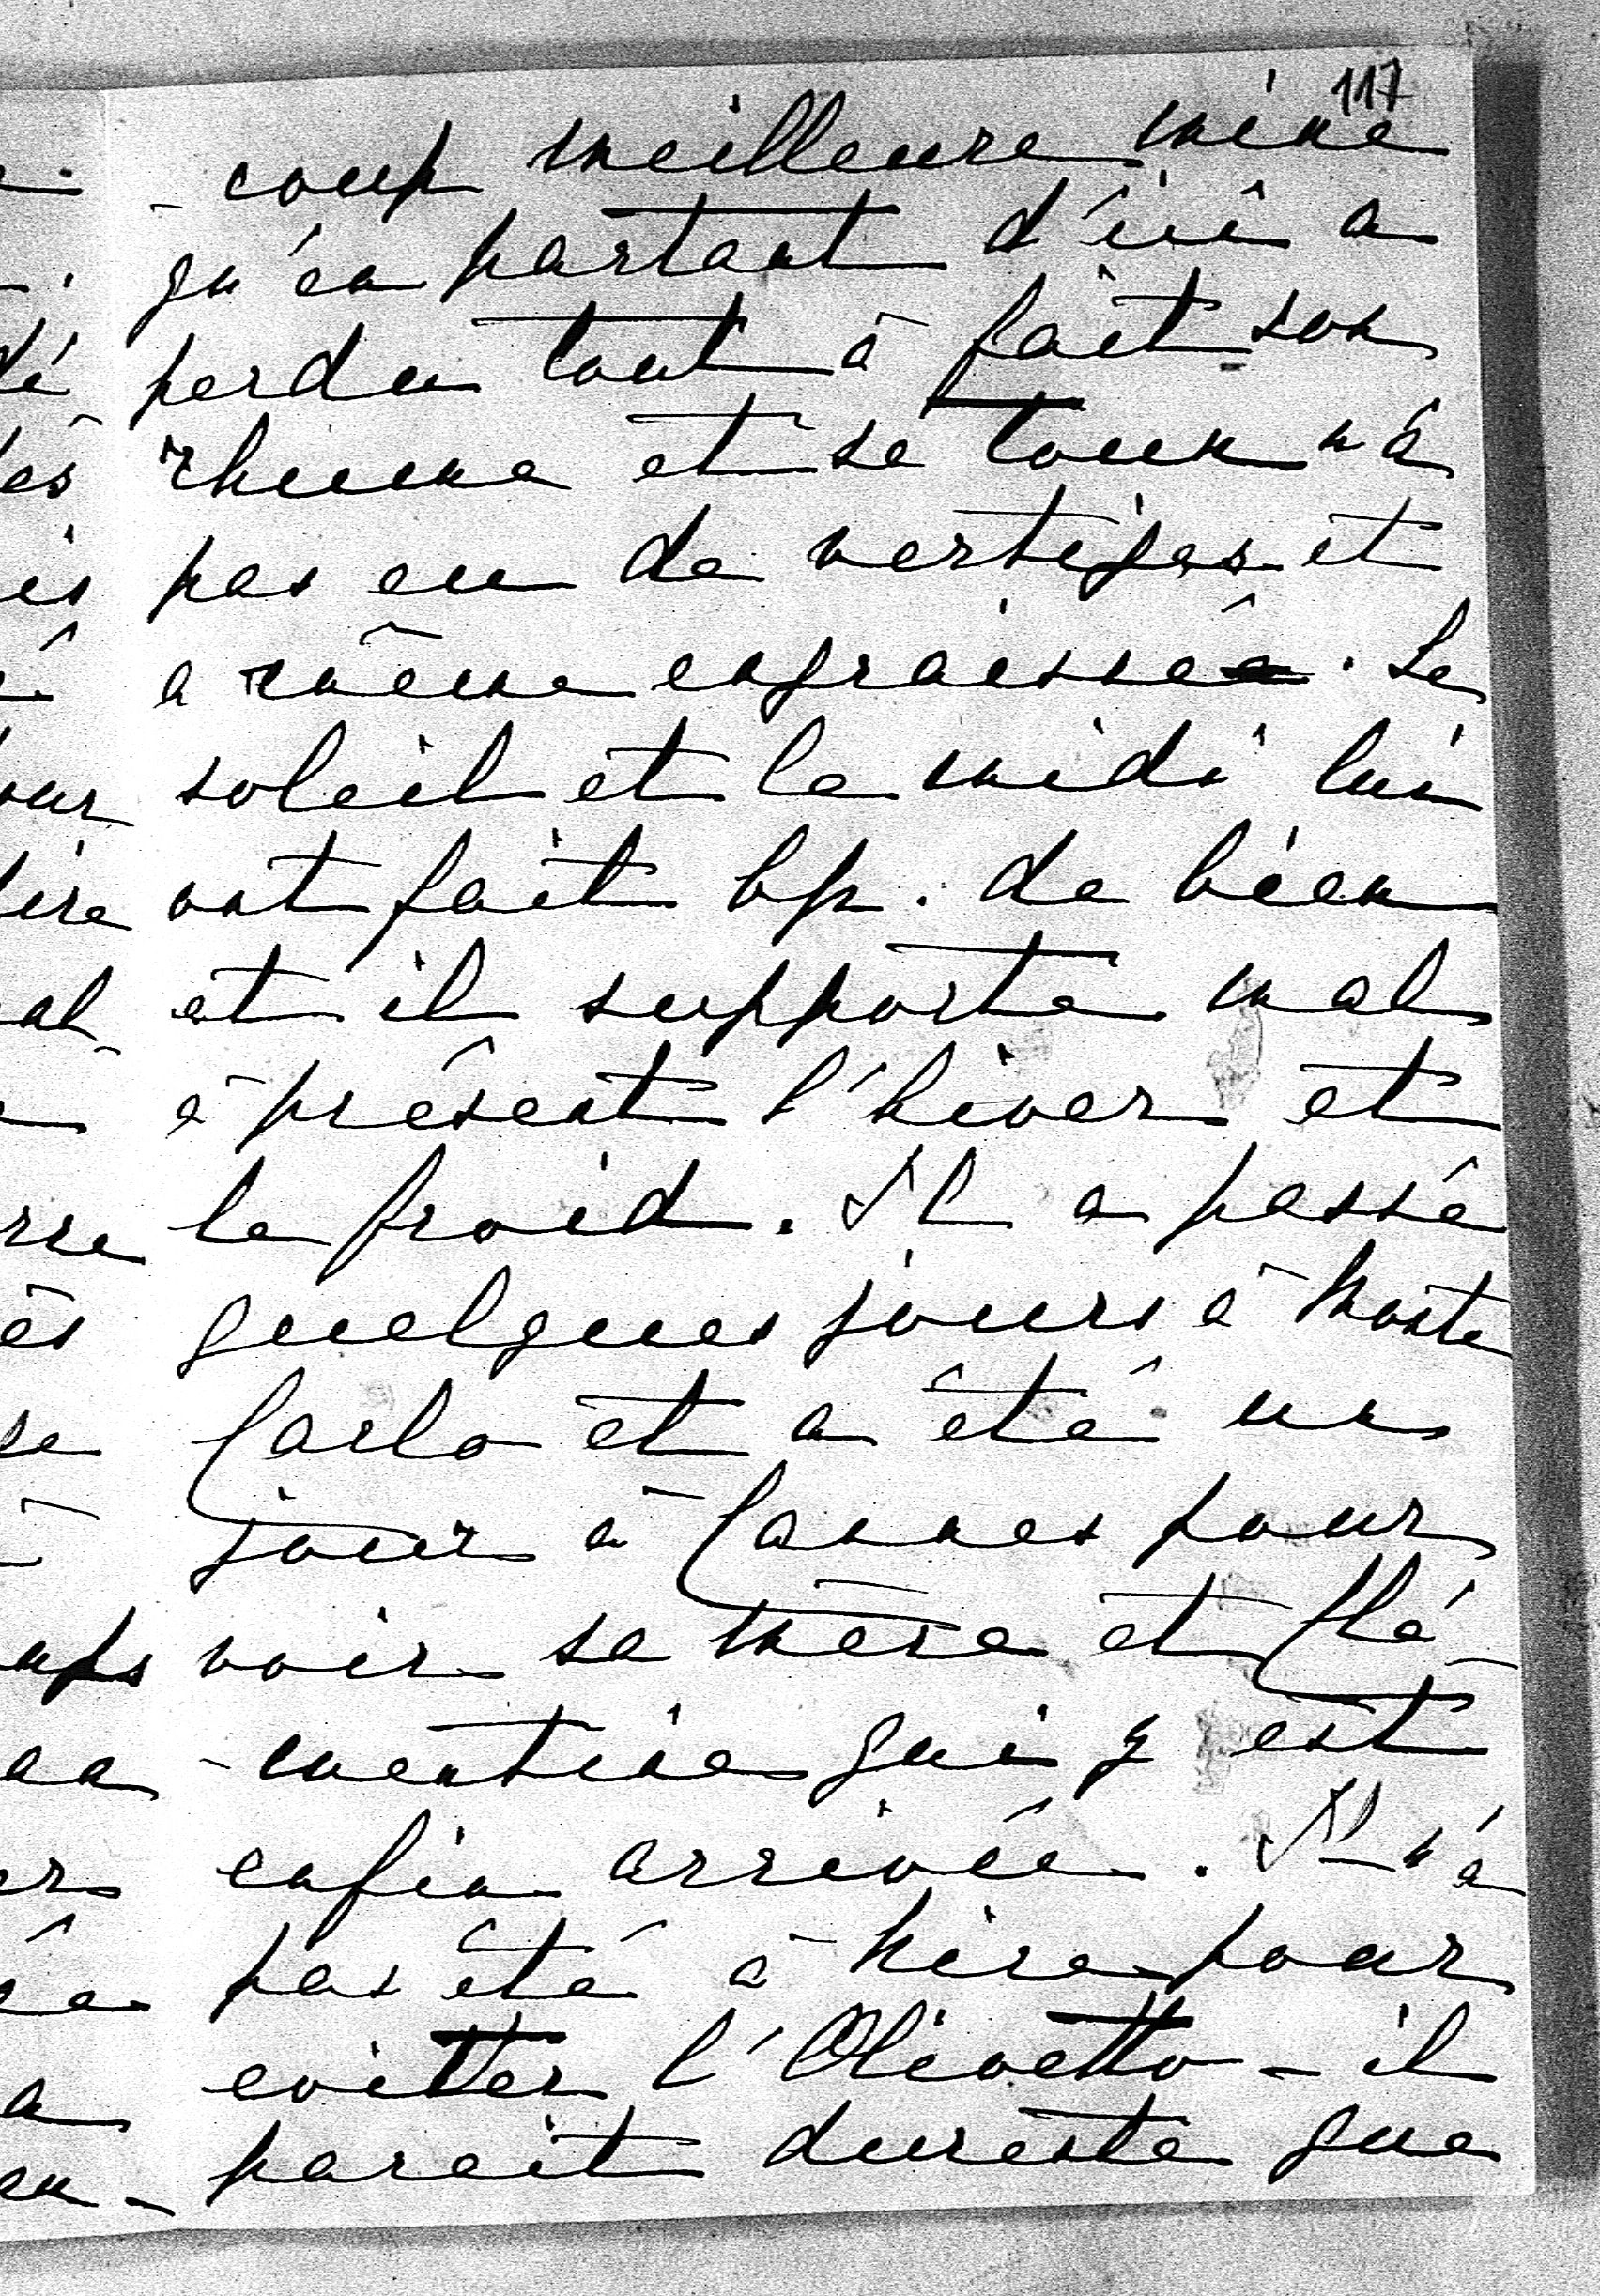 117
- coup meilleure mine
qu'en partant d'ici a
perdu tout à fait son
rhume et sa toux n'a
pas eu de vertiges et
a même engraissé. Le
soleil et le midi lui
ont fait bp. de bien
et il supporte mal
à présent l'hiver et
le froid. Il a passé
quelques jours à Monte
Carlo et a été un
jour à Cannes pour
voir sa mère et Clé-
-mentine qui y est
enfin arrivée. Il n'a
pas été à Nice pour
eviter l'Olivetto - il
parait dureste que